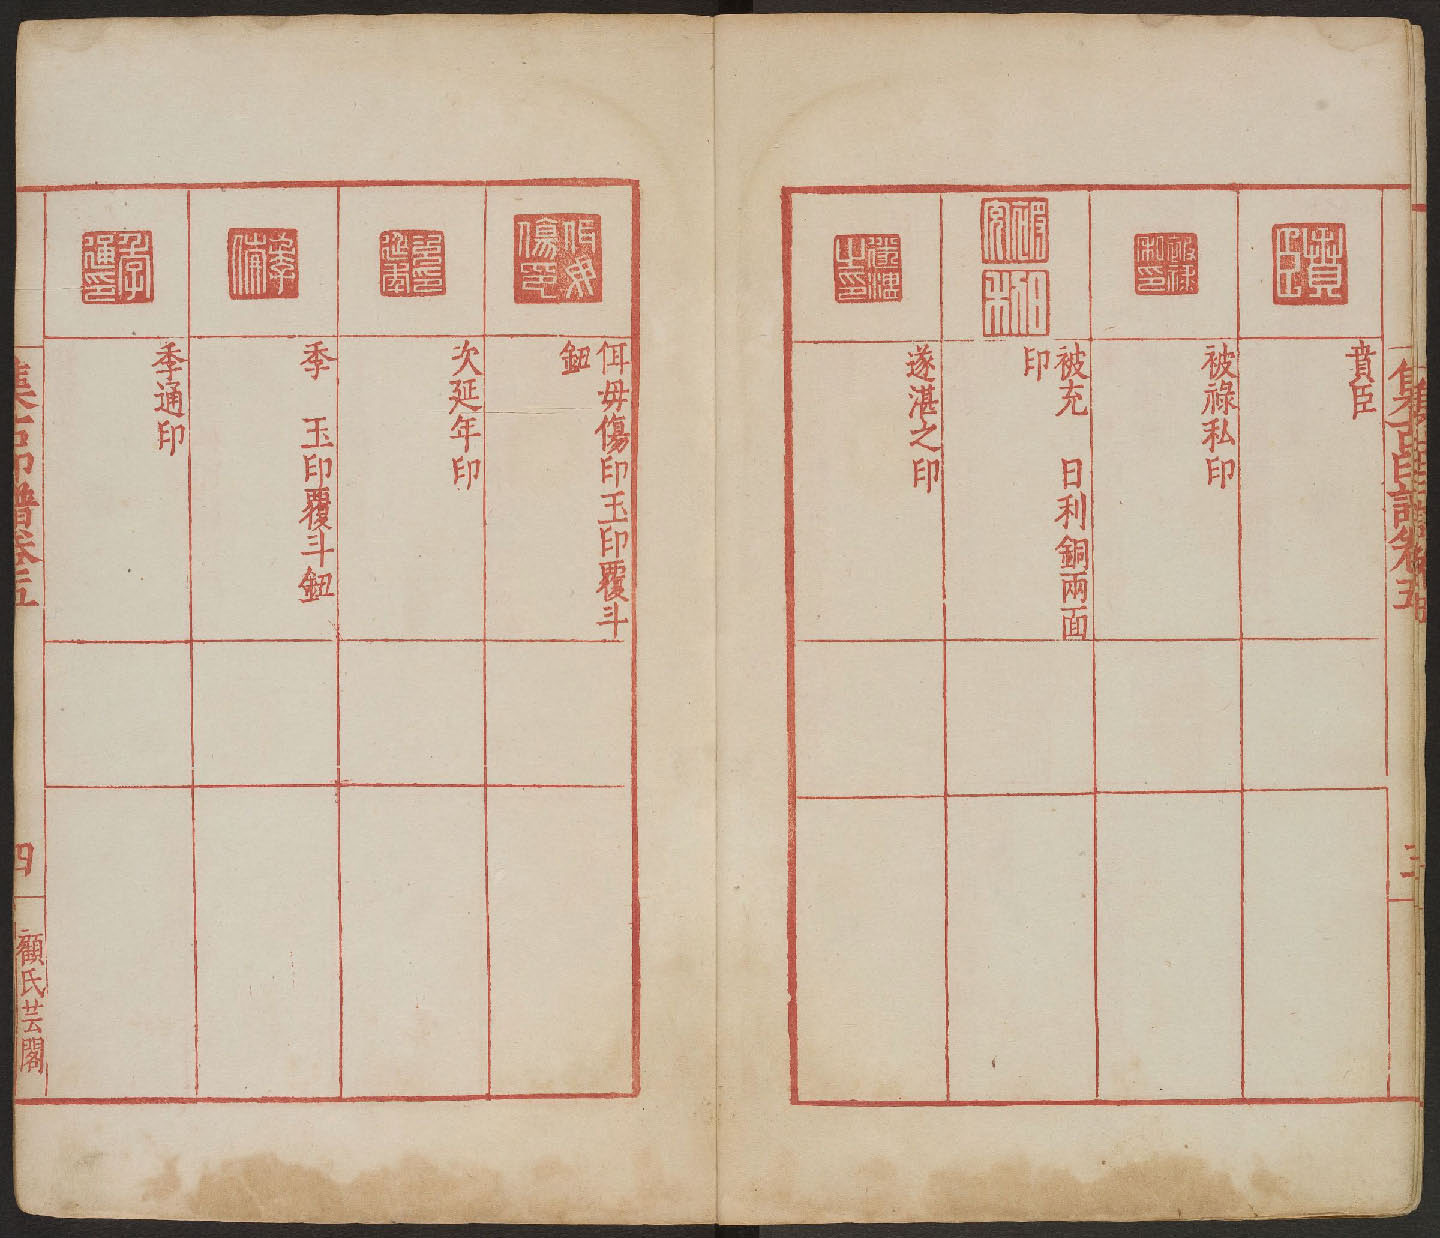 集古印譜卷五
三
賁臣
被祿私印
被充　日利銅兩面
印
遂湛之印
佴毋傷印玉印覆斗
鈕
次延年印
季　玉印覆斗鈕
季通印
集古印譜卷五
四
顧氏芸閣